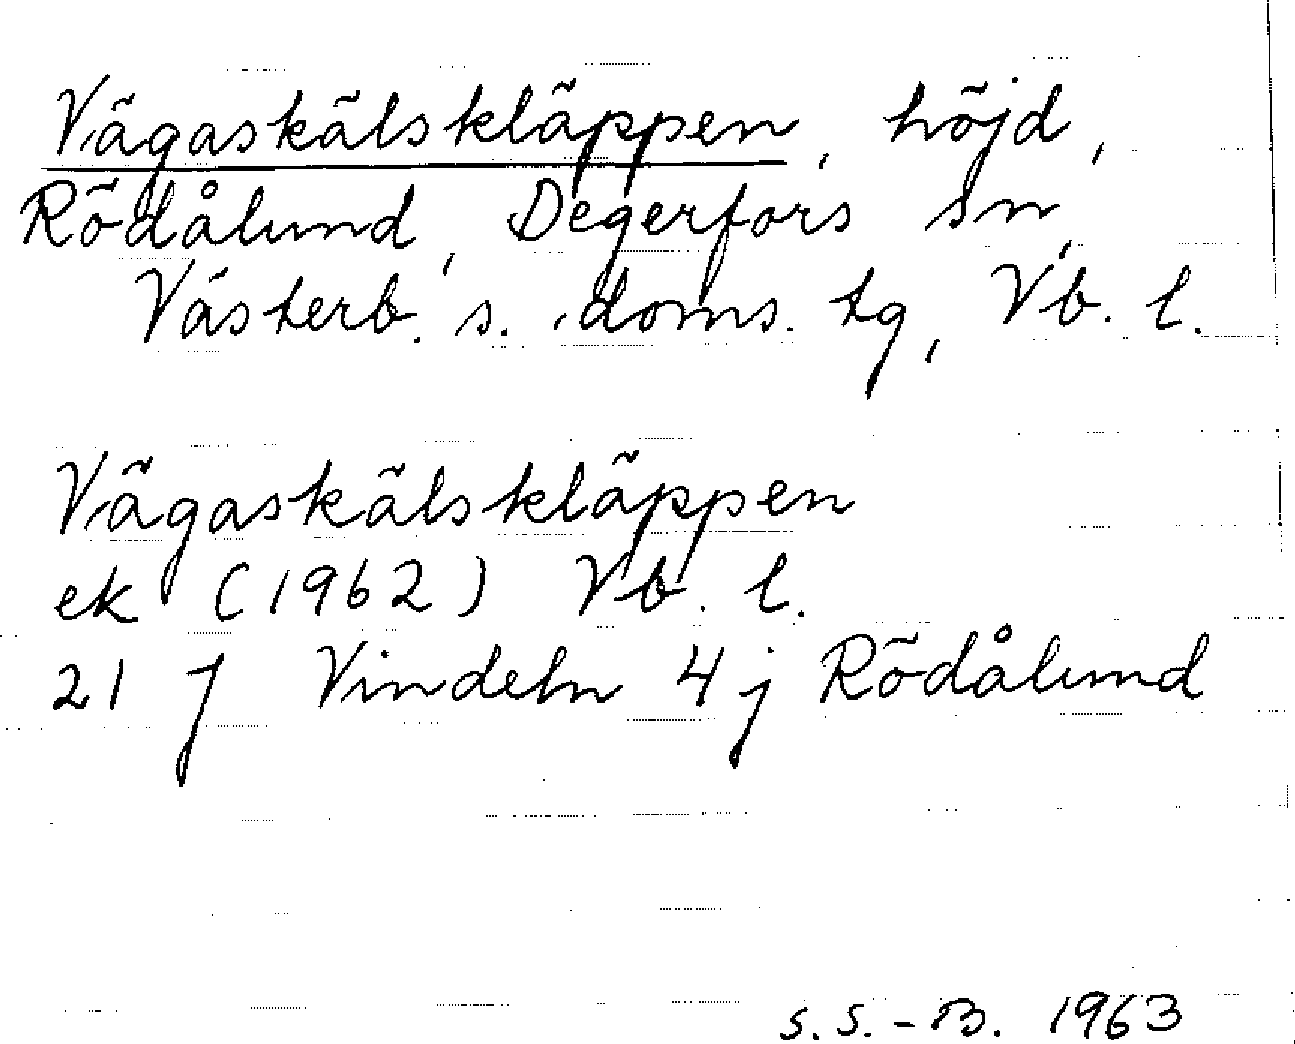 Vägaskälskläppen, höjd,
Rödålund, Degerfors sn,
Västerb. s. doms. tg, Vb. l.
Vägaskälskläppen
ek (1962) Vb. l.
21 J Vindeln 4j Rödålund
S. S.-B. 1963